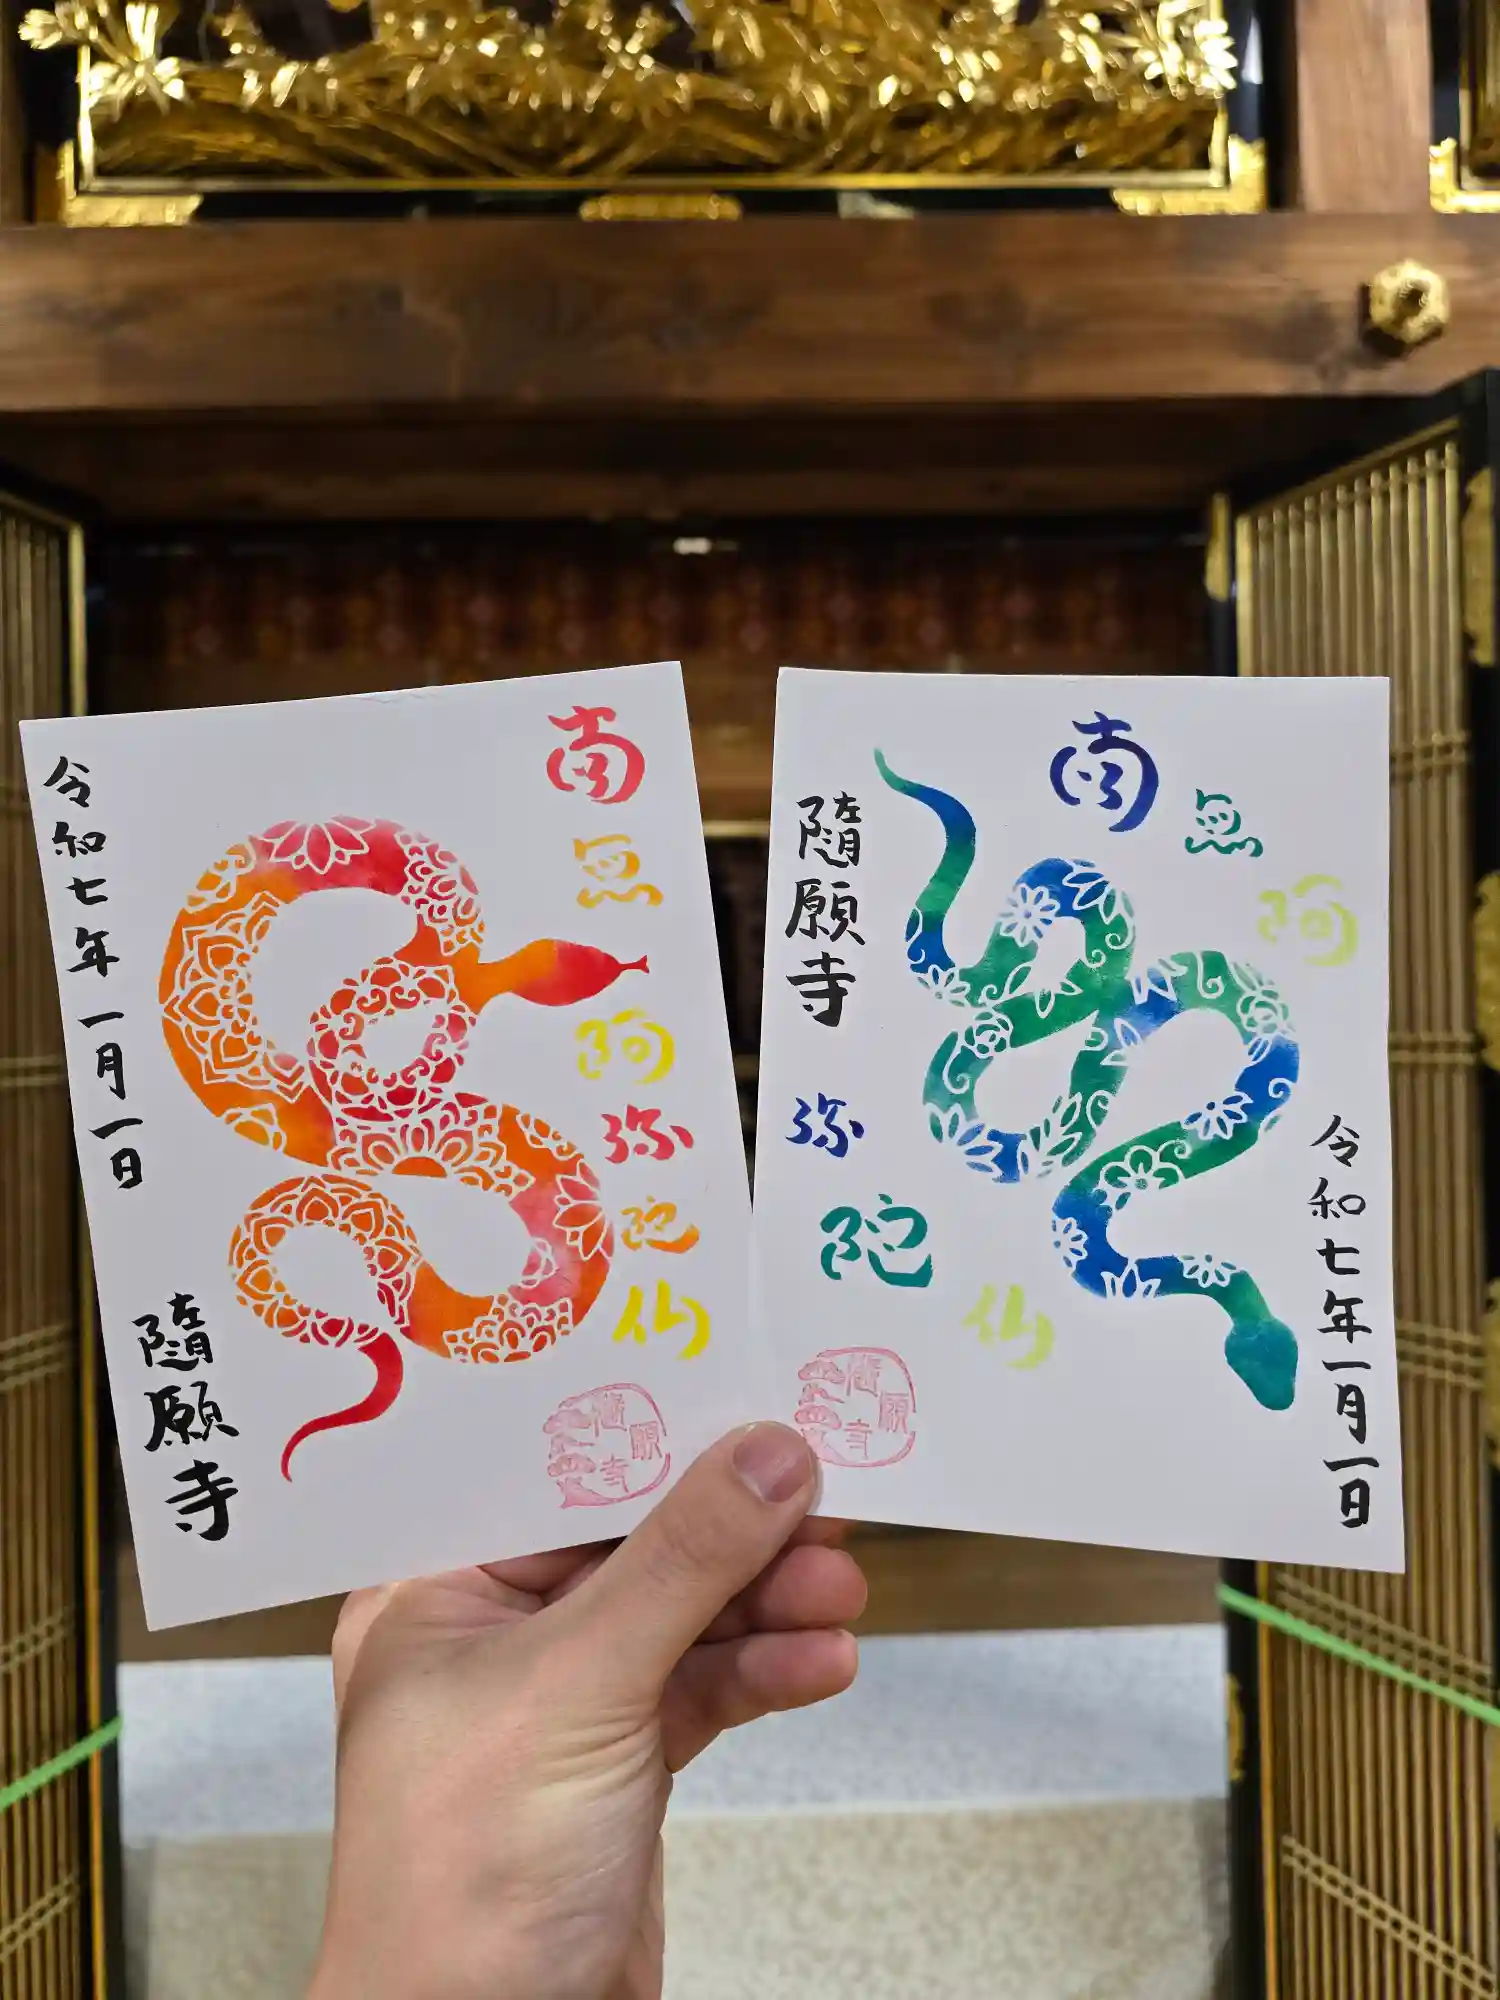 南无阿弥陀仏
令和七年一月一日
隨願寺
隨願寺
南无阿弥陀仏
隨願寺
令和七年一月一日
隨願寺